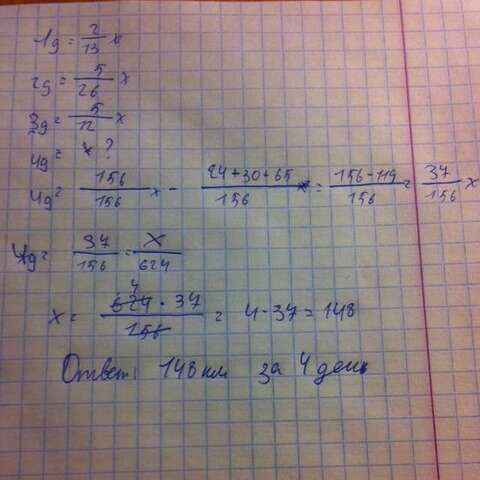 1g = 2/13 x
2g = 5/26 x
3g = 5/12 x
4g = x ?
4g = 156/156 x - 24+30+65/156 x = 156-119/156 = 37/156 x
4g = 37/156 = x/624
x = 624 · 37/156 = 4 · 37 = 148
4
Ответ: 148 км за 4 день